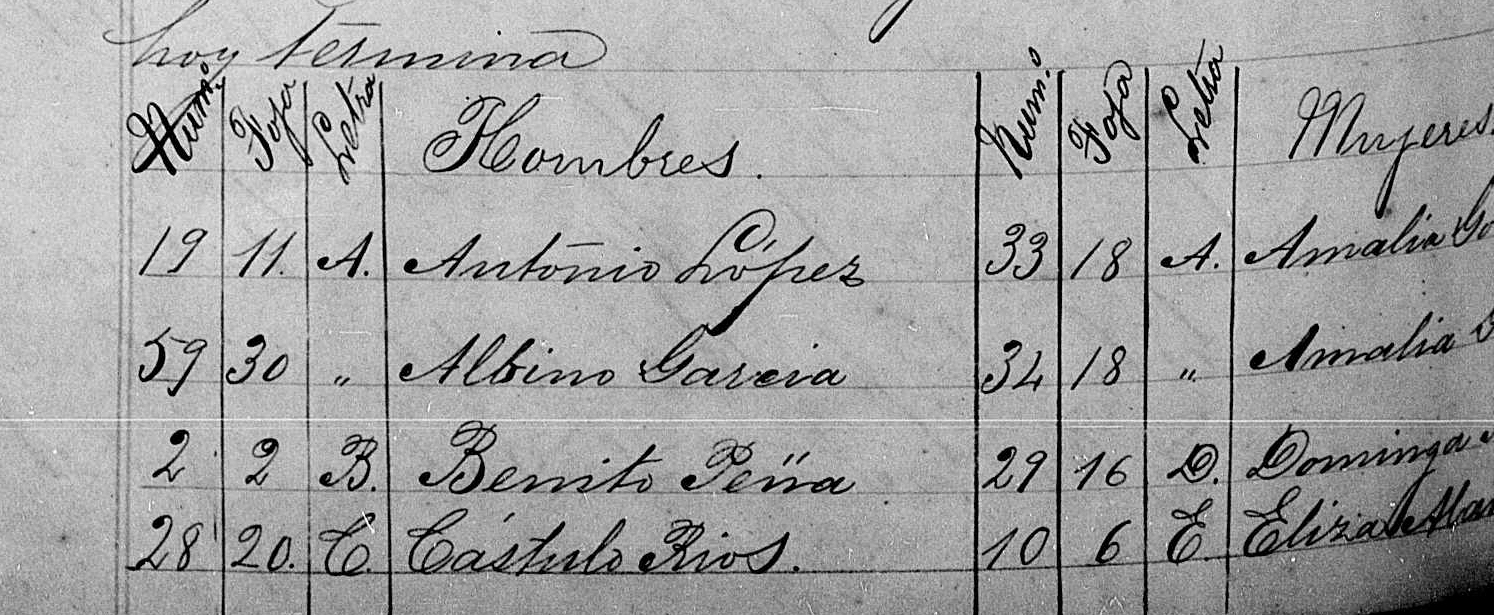 hoy termina
Num.o Foja Letra Hombres. Num.o Foja Letra Mujeres.
19 11. A. Antonio López 33 18 A. Amalia
59 30 „ Albino Garcia 34 18 „ Amalia
2 2 B. Benito Peña 29 16 D. Dominga
28 20. C. Cástulo Rios. 10 6 E. Eliza